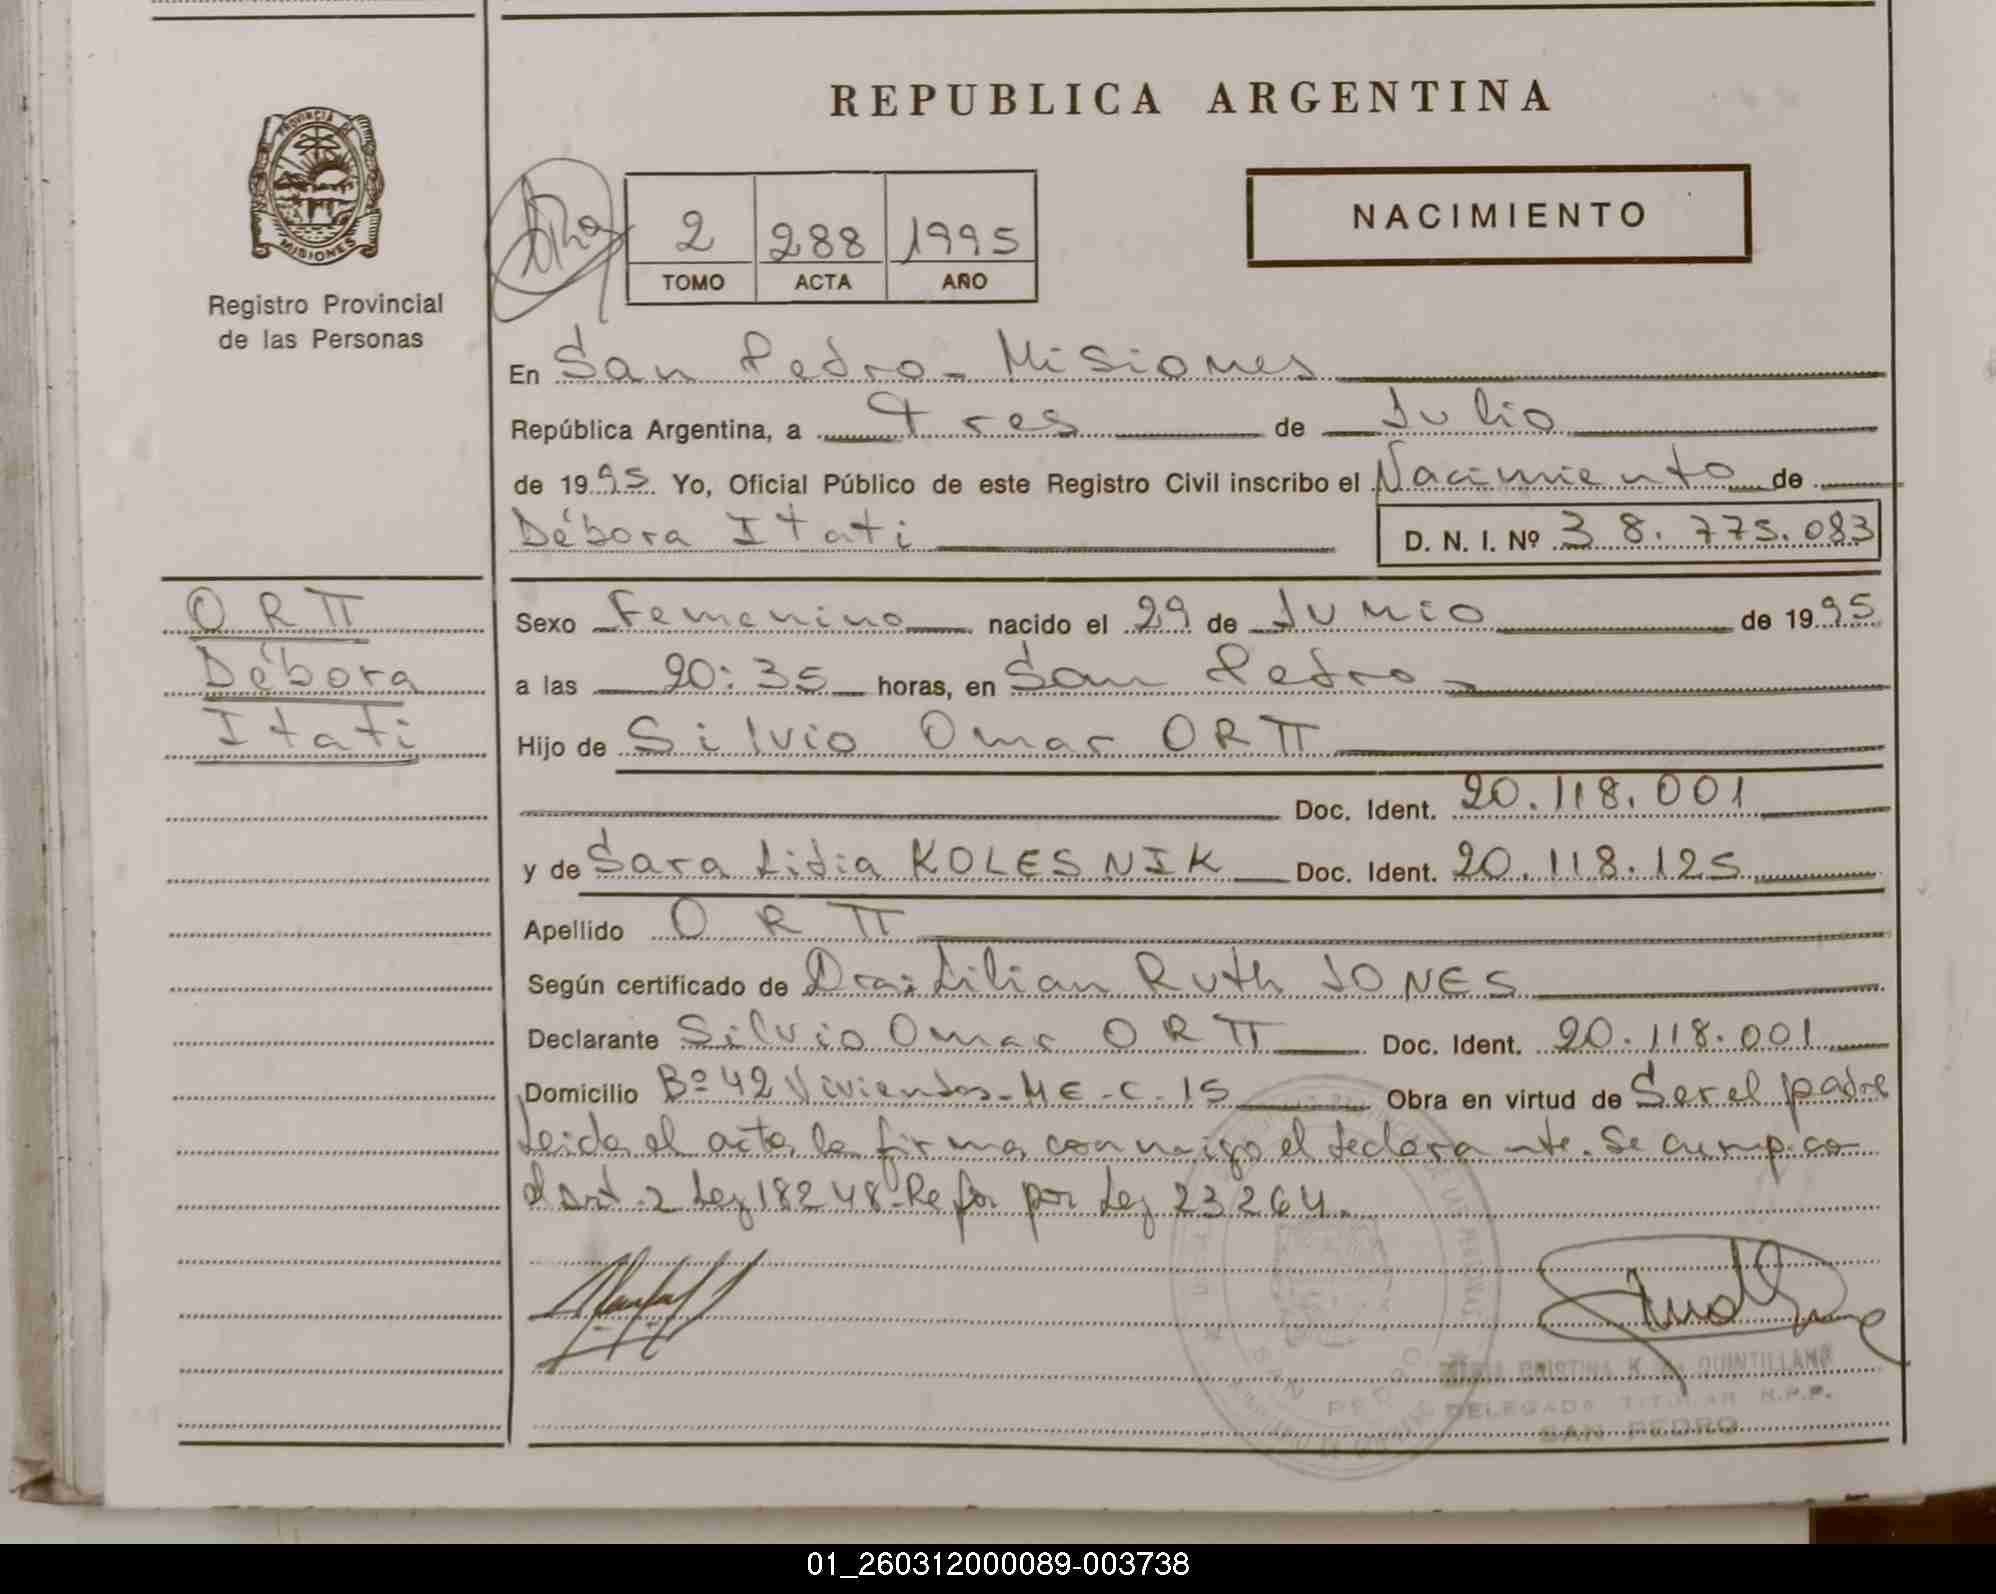 REPUBLICA ARGENTINA
PROVINCIA DE
MISIONES
Registro Provincial
de las Personas
2 288 1995
TOMO ACTA AÑO
NACIMIENTO
En San Pedro - Misiones
República Argentina, a Tres de Julio
de 1995. Yo, Oficial Público de este Registro Civil inscribo el Nacimiento de
Débora Itati D. N. I. Nº 38.775.083
ORTT
Débora
Itati
Sexo Femenino nacido el 29 de Junio de 1995
a las 20:35 horas, en San Pedro -
Hijo de Silvio Omar ORTT
Doc. Ident. 20.118.001
y de Sara Lidia KOLESNIK Doc. Ident. 20.118.125
Apellido ORTT
Según certificado de Dra: Lilian Ruth JONES
Declarante Silvio Omar ORTT Doc. Ident. 20.118.001
Domicilio Bº 42 Viviendas - ME - C - 15 Obra en virtud de Ser el padre
Leida el acta la firma conmigo el declarante. Se cumpco
el Art. 2 Ley 18248 - Refor por Ley 23264.
SAN PEDRO
CRISTINA K. QUINTILLANA
DELEGADA TITULAR R.P.P.
SAN PEDRO
01_260312000089-003738